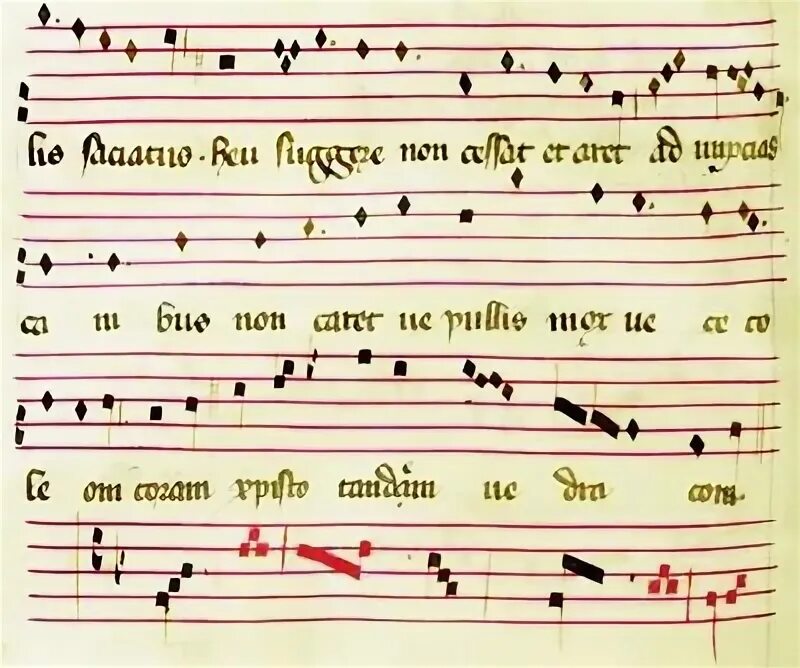 lis saciatus · heu suggere non cessat et aret ad nupcias
ca ni bus non caret ue pullis mox ue ce co
le om coram xpisto tandem ue dra com.